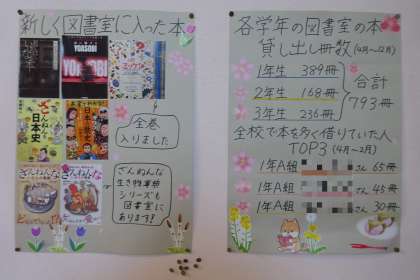 新しく図書室に入った本
YOASOBI
ざんねんな
日本史
日本の歴史
ざんねんな
ざんねんな
全巻
入りました
ざんねんな
生き物事典
シリーズも
図書室に
あります!
各学年の図書室の本
貸し出し冊数(4月~12月)
1年生 389冊
2年生 168冊
3年生 236冊
合計
793冊
全校で本を多く借りていた人
TOP3(4月~2月)
1年A組 さん 65冊
1年A組 さん 45冊
1年A組 さん 30冊